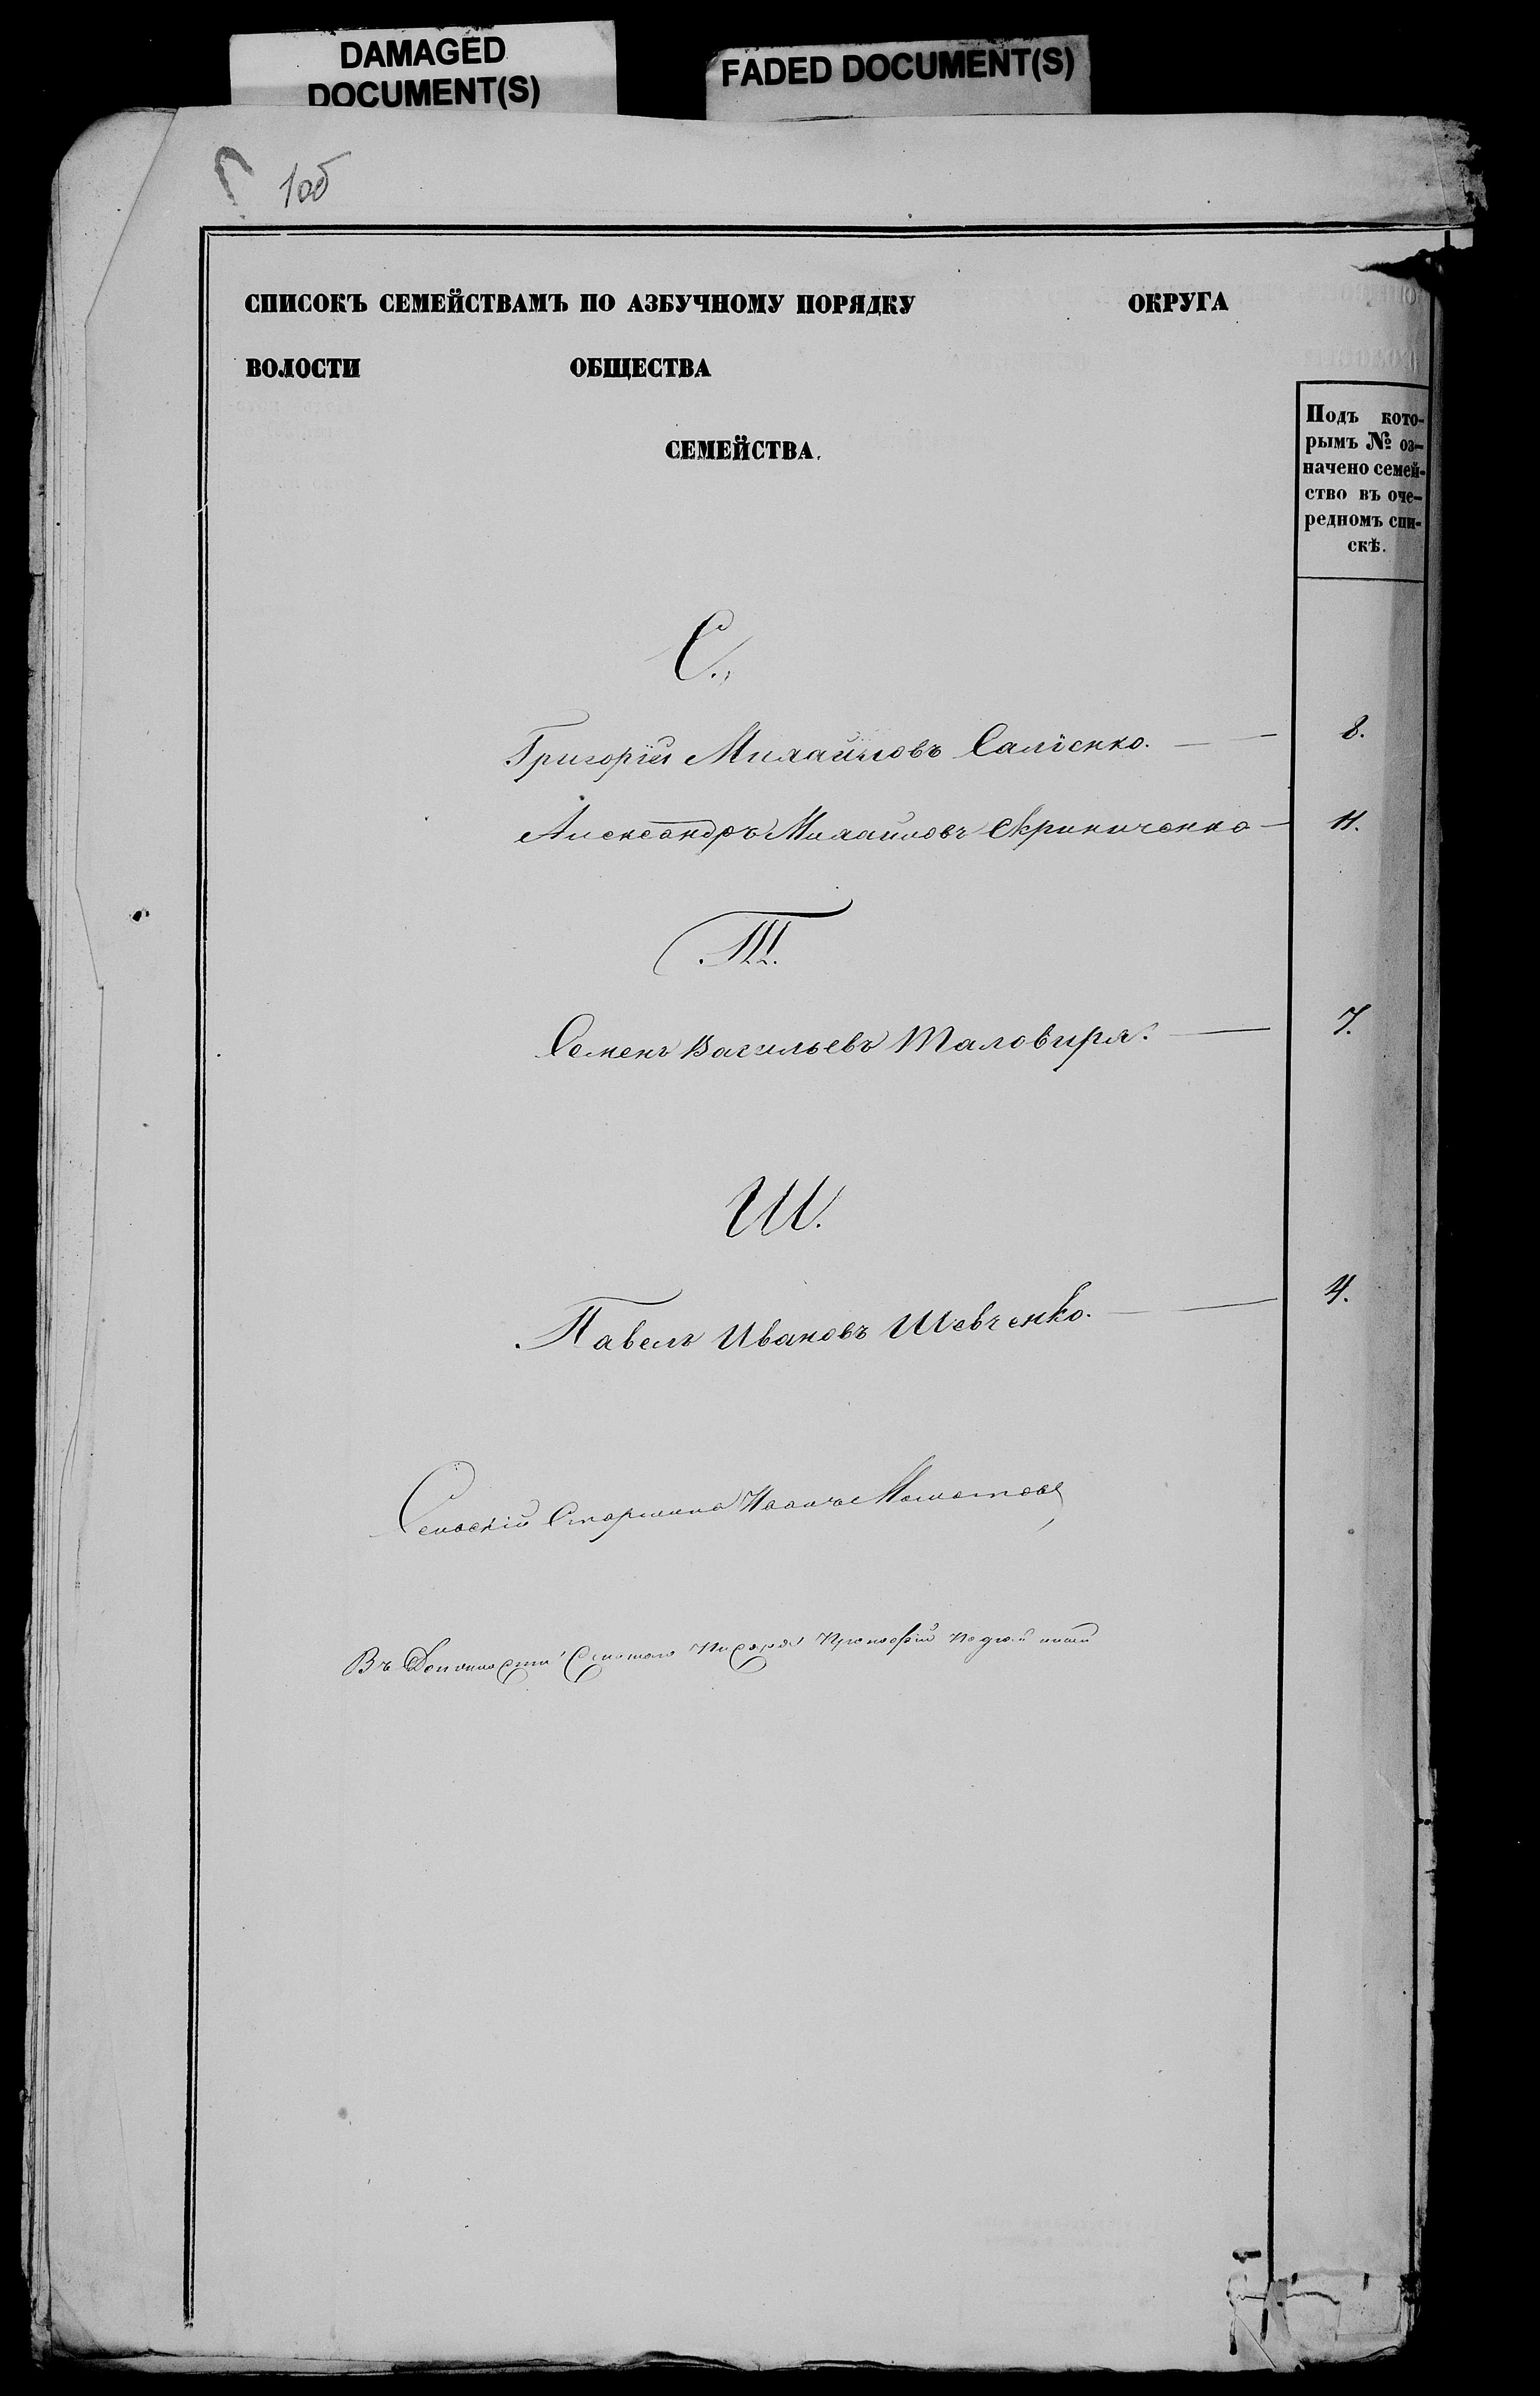 DAMAGED
DOCUMENT(S)
FADED DOCUMENT(S)
СПИСОКЪ СЕМЕЙСТВАМЪ ПО АЗБУЧНОМУ ПОРЯДКУ ОКРУГА
ВОЛОСТИ ОБЩЕСТВА
СЕМЕЙСТВА.
Подъ кото-
рымъ № оз-
начено семей-
ство въ оче-
редномъ спи-
скѣ.
С.
Григорій Михайловъ Саліенко. 8.
Александръ Михайловъ Скрипиченко 11.
Т.
Семенъ Васильевъ Таловиря. 7.
Ш.
Павелъ Ивановъ Шевченко. 4.
Сельскій Старшина Иванъ
Въ Должности Сельскаго Писаря Прокофій